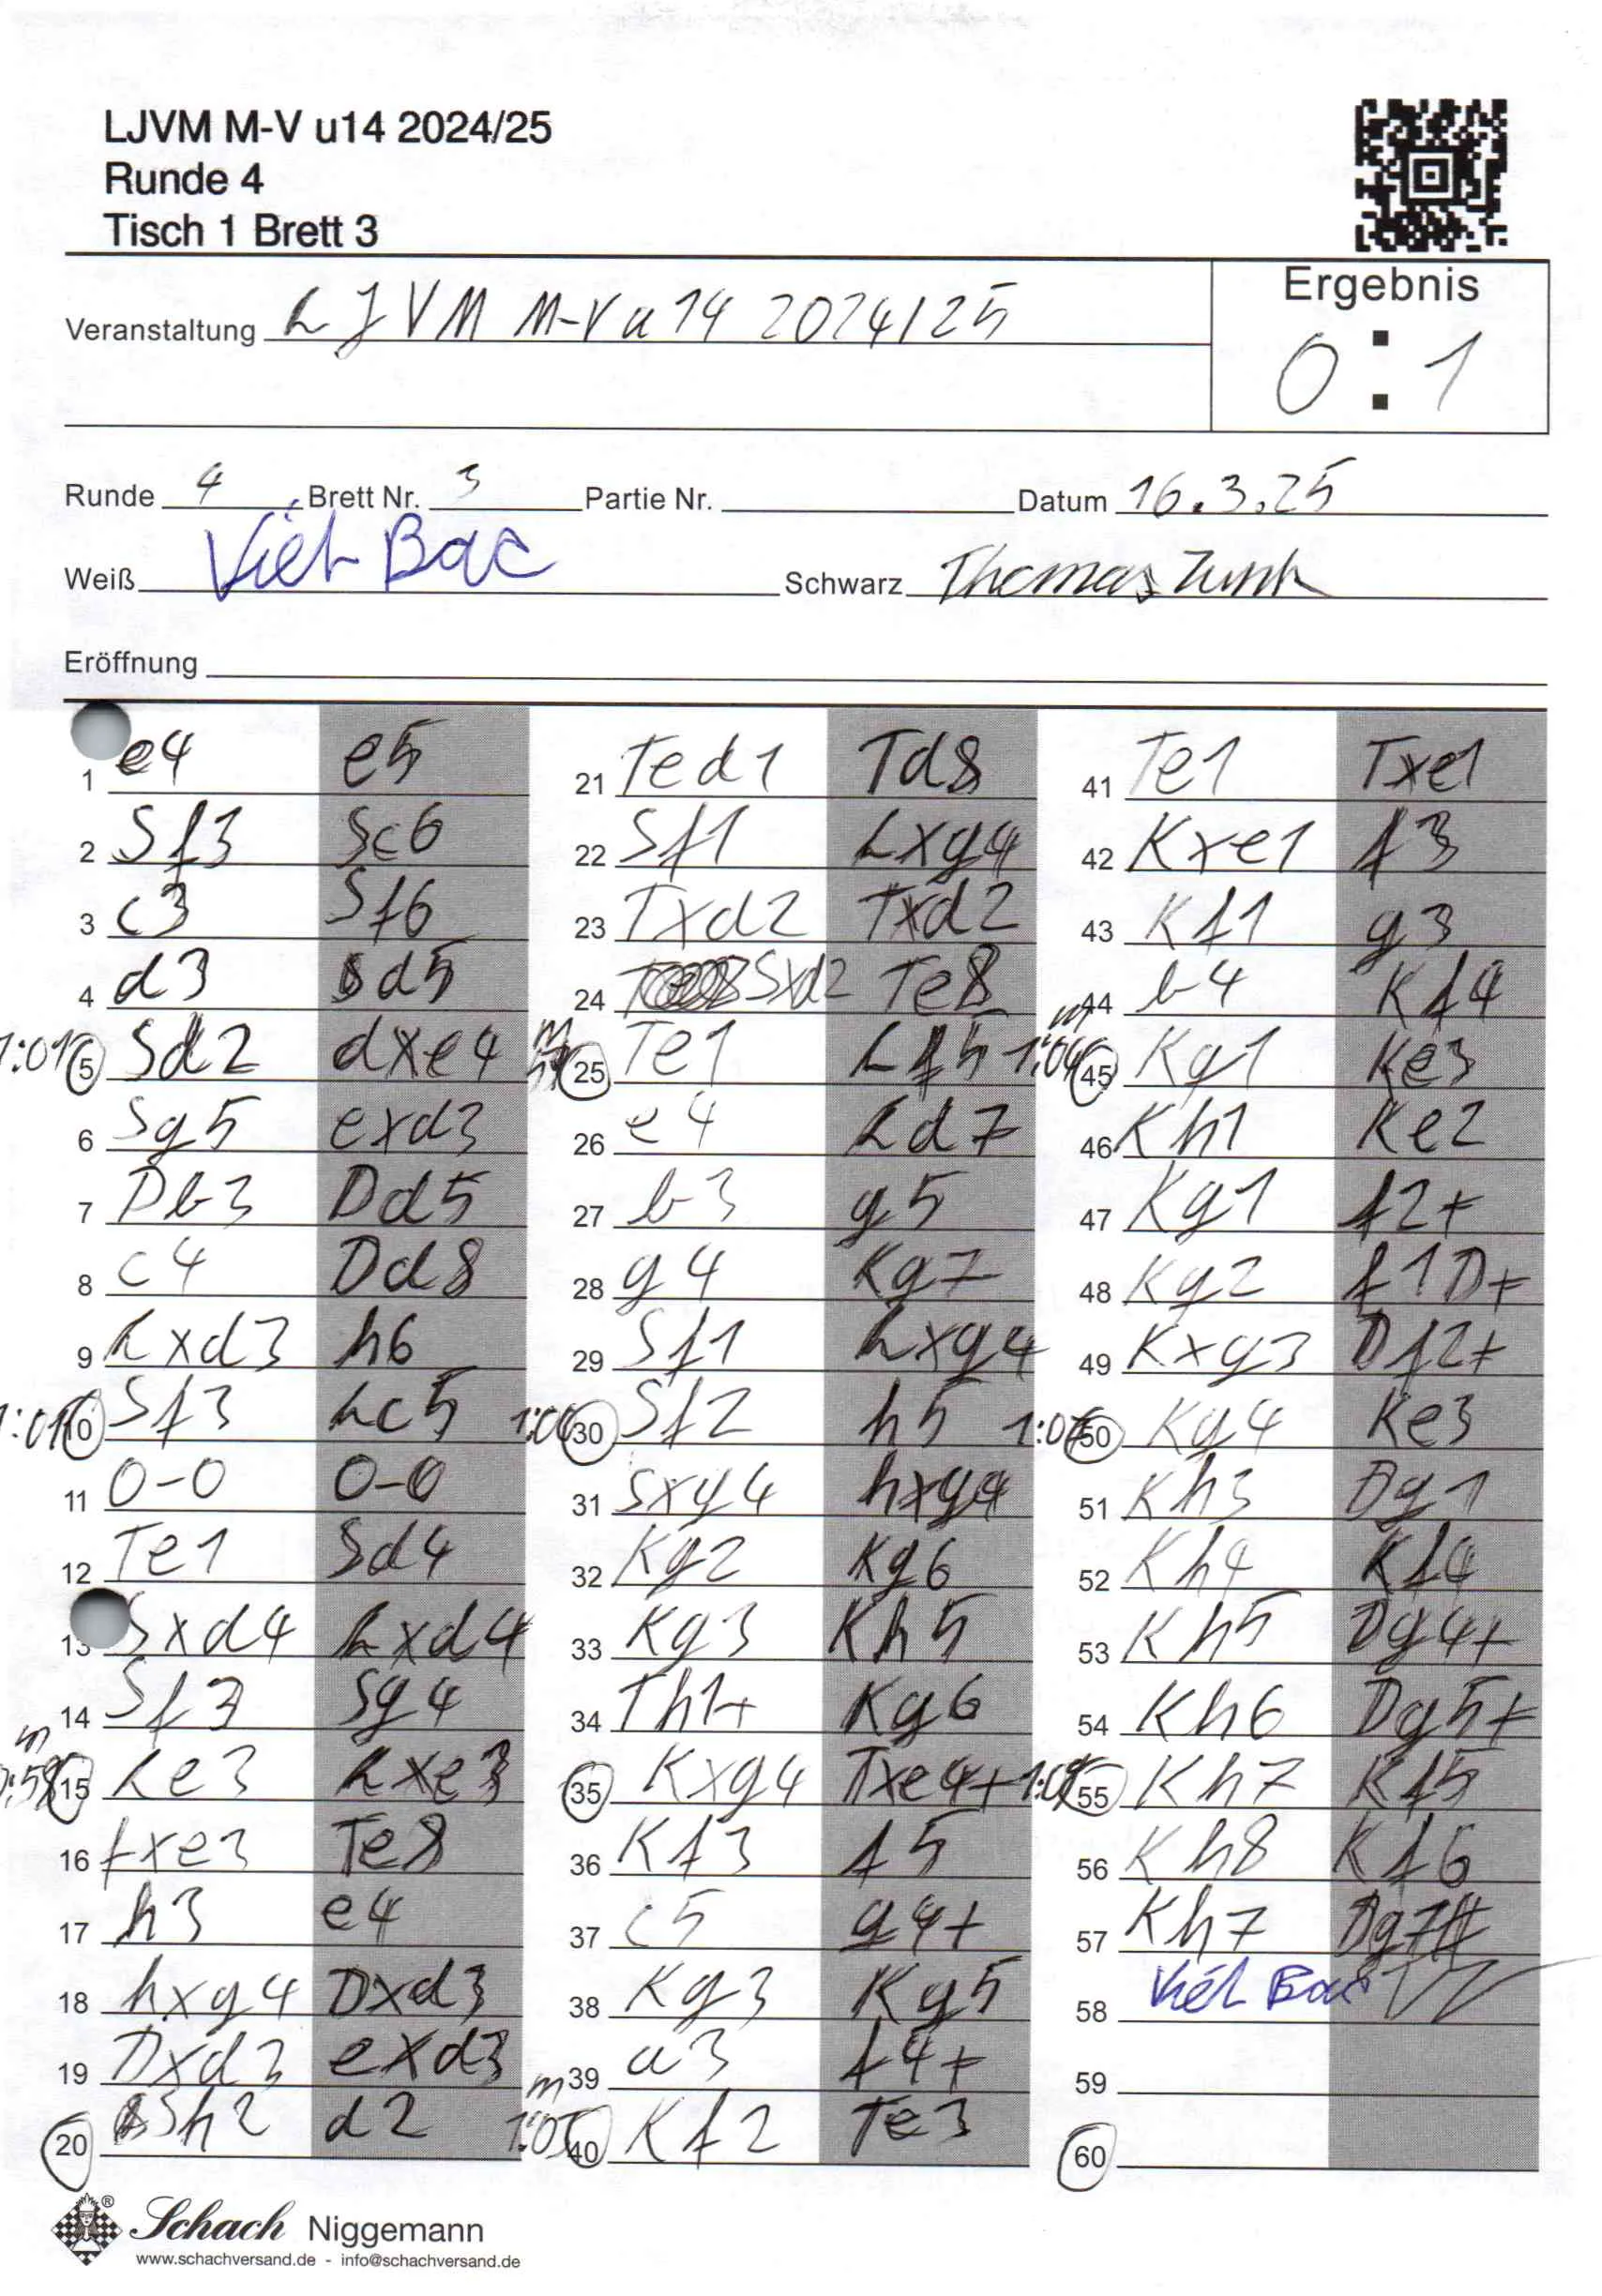 LJVM M-V u14 2024/25
Runde 4
Tisch 1 Brett 3
Ergebnis
Veranstaltung LJVM M-V u14 2024/25
0 : 1
Runde 4 Brett Nr. 3 Partie Nr. Datum 16.3.25
Weiß Viet Bac Schwarz Thomas Zunk
Eröffnung
1 e4 e5
2 Sf3 Sc6
3 c3 Sf6
4 d3 d5
1:01 5 Sd2 dxe4
6 Sg5 exd3
7 Db3 Dd5
8 c4 Dd8
9 Lxd3 h6
1:01 10 Sf3 Lc5
11 0-0 0-0
12 Te1 Sd4
13 Sxd4 Lxd4
14 Sf3 Sg4
m 0:58 15 Le3 Lxe3
16 fxe3 Te8
17 h3 e4
18 hxg4 Dxd3
19 Dxd3 exd3
20 Sh2 d2
21 Ted1 Td8
22 Sf1 Lxg4
23 Txd2 Txd2
24 Sxd2 Te8
m 25 Te1 Lf5
26 e4 Ld7
27 b3 g5
28 g4 Kg7
29 Sf1 Lxg4
1:00 30 Sf2 h5
31 Sxg4 hxg4
32 Kg2 Kg6
33 Kg3 Kh5
34 Th1+ Kg6
35 Kxg4 Txe4+
36 Kf3 f5
37 c5 g4+
38 Kg3 Kg5
39 a3 f4+
m 1:05 40 Kf2 Te3
41 Te1 Txe1
42 Kxe1 f3
43 Kf1 g3
44 b4 Kf4
m 45 Kg1 Ke3
46 Kh1 Ke2
47 Kg1 f2+
48 Kg2 f1D+
49 Kxg3 Df2+
50 Kg4 Ke3
51 Kh3 Dg1
52 Kh4 Kf4
53 Kh5 Dg4+
54 Kh6 Dg5+
55 Kh7 Kf5
56 Kh8 Kf6
57 Kh7 Dg7#
58 Viet Bac TZ
59
60
Schach Niggemann
www.schachversand.de - info@schachversand.de